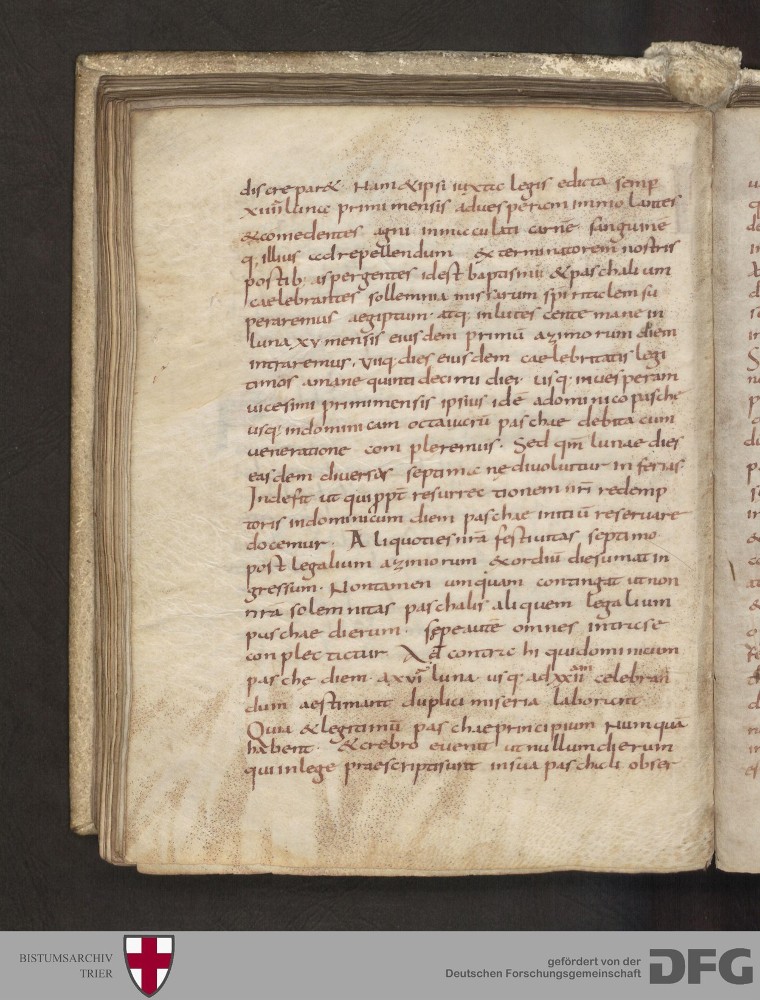 discrepar&. Nam &ipsi iuxta legis edicta semp
xiiii luna primi mensis aduesperam immolantes
&comedentes agni inmaculati carnē sanguinē
q. illius adrepellendum exterminatorem nostris
postib; aspergentes idest baptismū &paschalium
caelebrantes sollemnia missarum spiritalem su
peraremus aegiptum. atq; inlutescente mane in
luna. xv mensis eiusdem primū azimorum diem
intraremus. viiq; dies eiusdem caelebritatis legi
timos amane quinti decimi diei usq; inuesperam
uicesimi primimensis ipsius idē adominico pasche
usq; indominicam octauarū paschae debita cum
ueneratione conpleremus. Sed qm̄ lunae dies
easdem diuersas septimanę diuoluntur in ferias
Indefit ut quippt̄ resurrectionem nr̄i redemp
toris indominicum diem paschae initiū reseruare
docemur. Aliquoties nr̄a festiuitas septimo
post legalium azimorum &ordiū diesumat in
gressum. Nontamen umquam contingat ut non
nr̄a solemnitas paschalis aliquem legalium
paschae dierum. sepeautē omnes intra se
conplectatur. At contra hi quidominicum
pasche diem. axvi luna usq; adxxii am celebran
dum aestimant duplici miseria laborant
Quia &legitimū paschaeprincipium numquā
habent. &crebro euenit ut nullumdierum
qui inlege praescriptisunt insua paschali obser
BISTUMSARCHIV
TRIER
gefördert von der
Deutschen Forschungsgemeinschaft
DFG